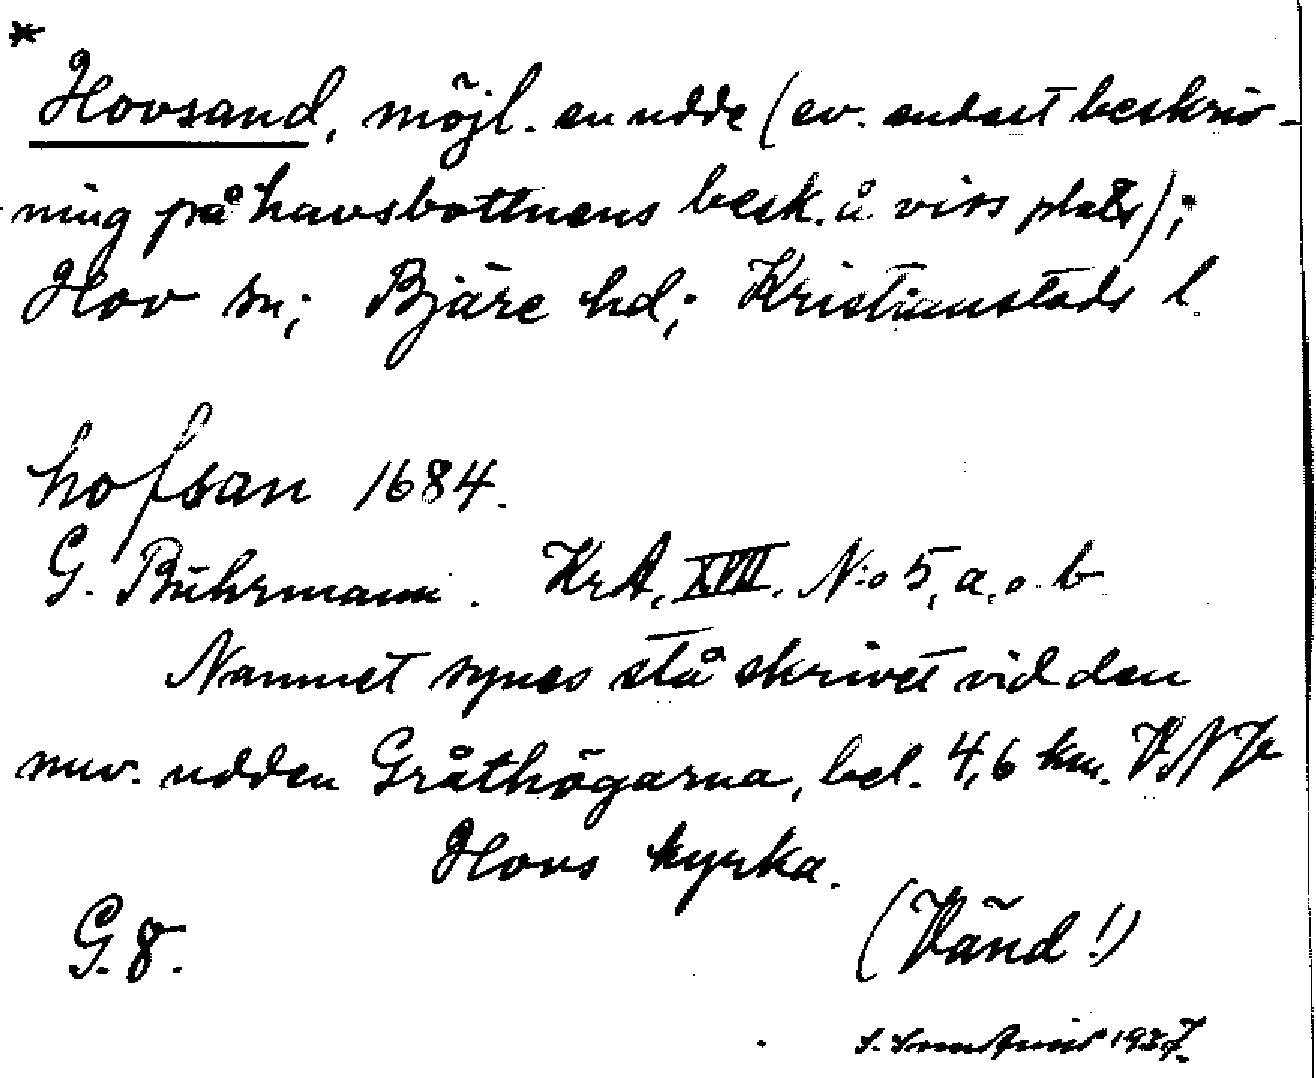 *
Hovsand, möjl. en udde (ev. endast beskriv-
ning på havsbottnens besk. å viss plats);
Hov sn; Bjäre hd; Kristianstads l.
hofsan 1684.
G. Buhrmann. KrA, XVII. N:o 5, a. o. b
Namnet synes stå skrivet vid den
nuv. udden Gråthögarna, bel. 4,6 km. VNV
Hovs kyrka.
(Vänd!)
G. 8.
1937.